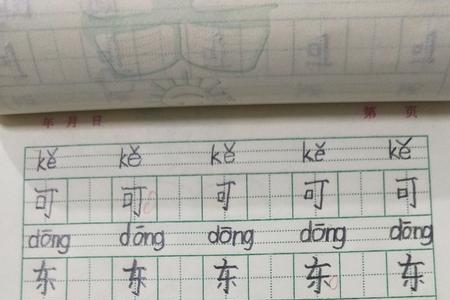 年 月 日 第 页
kě kě kě kě kě
可 可 可 可 可
dōng dōng dōng dōng dōng
东 东 东 东 东